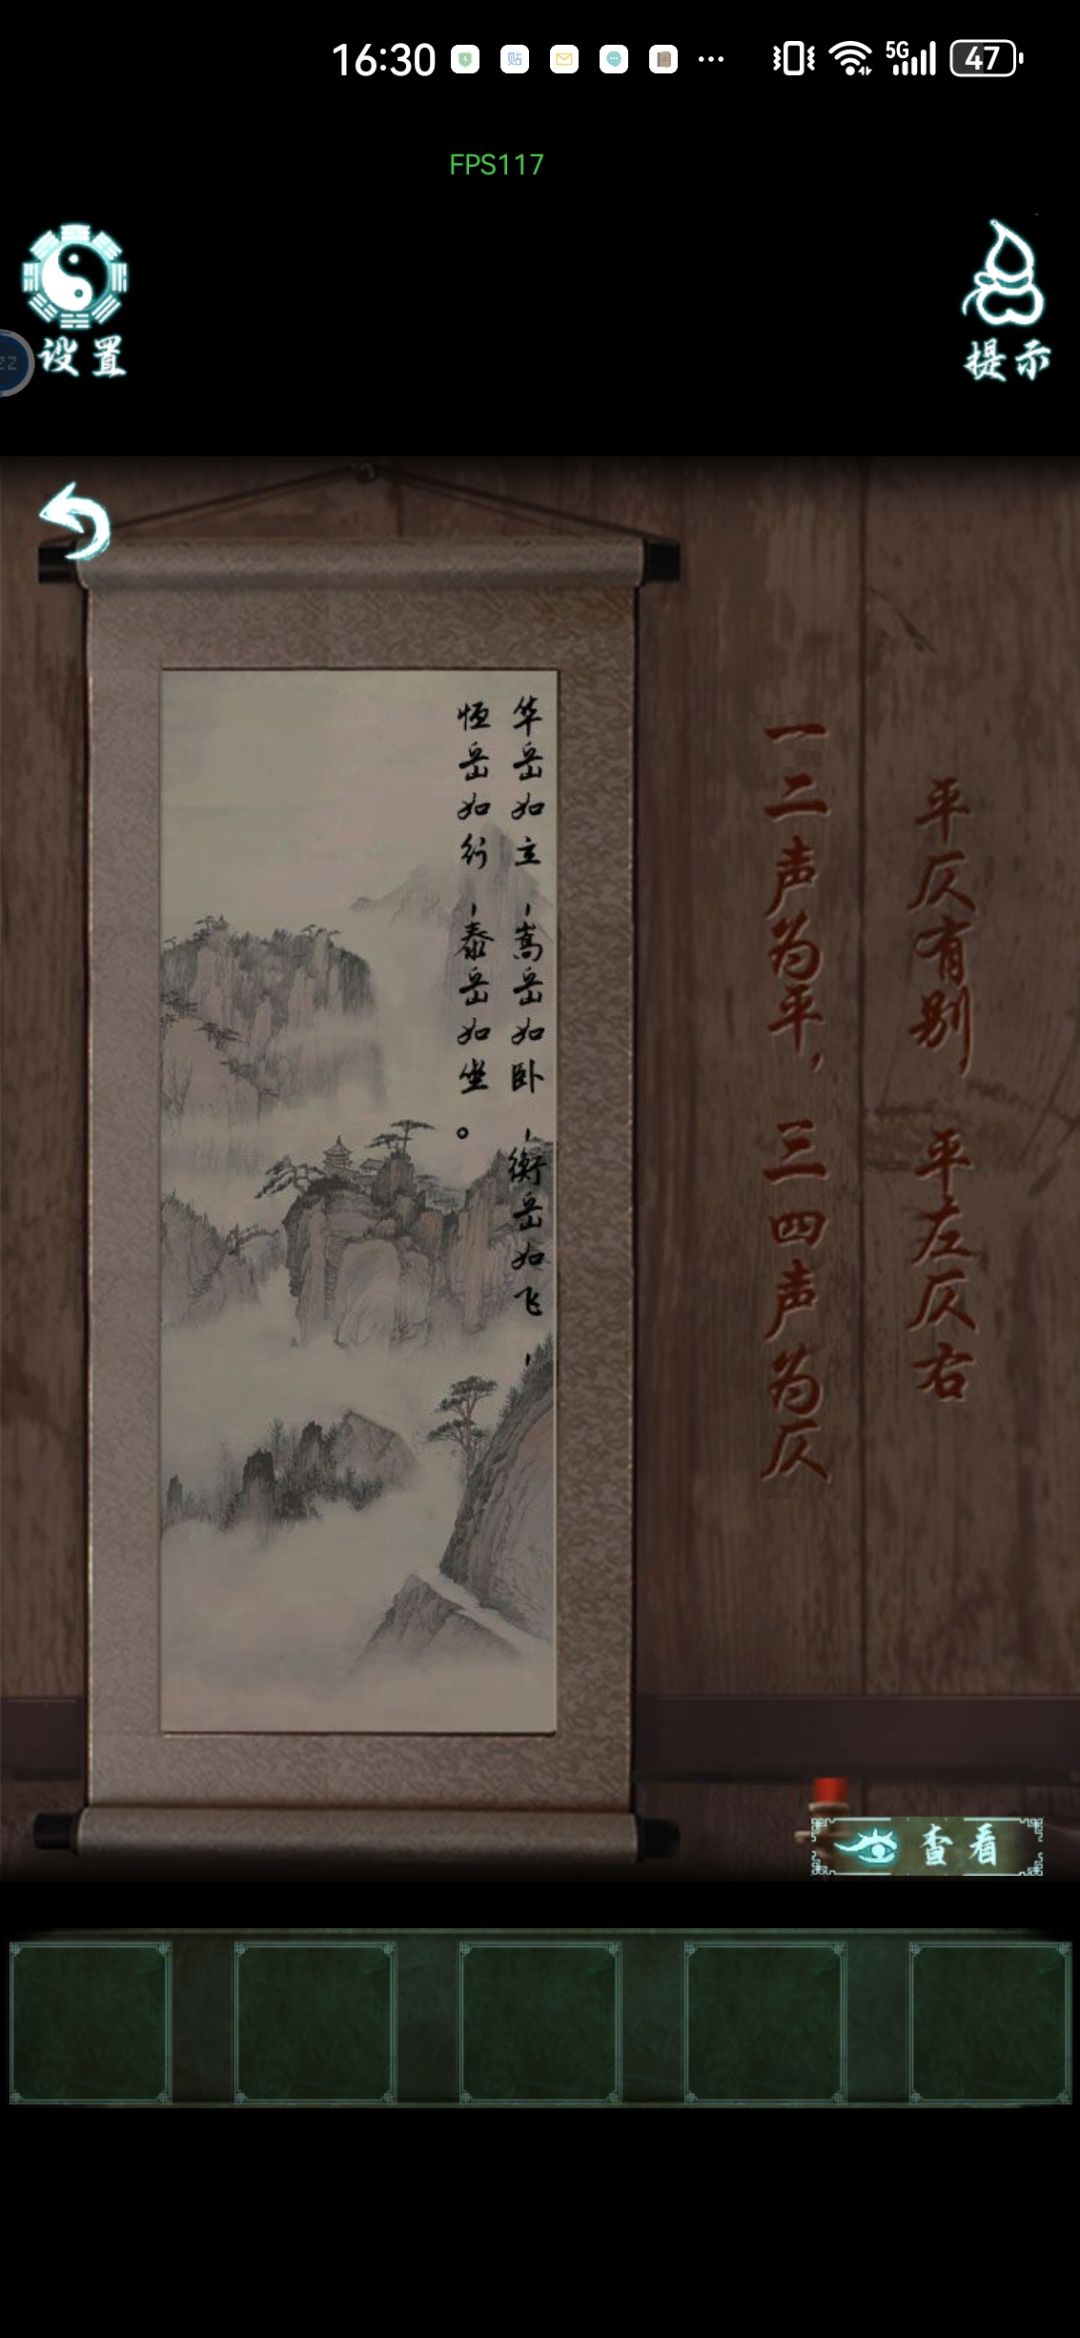 16:30
贴
5G
47
FPS117
设置
提示
22
华岳如立，嵩岳如卧，衡岳如飞，
恒岳如行，泰岳如坐。
平仄有别 平左仄右
一二声为平，三四声为仄
查看